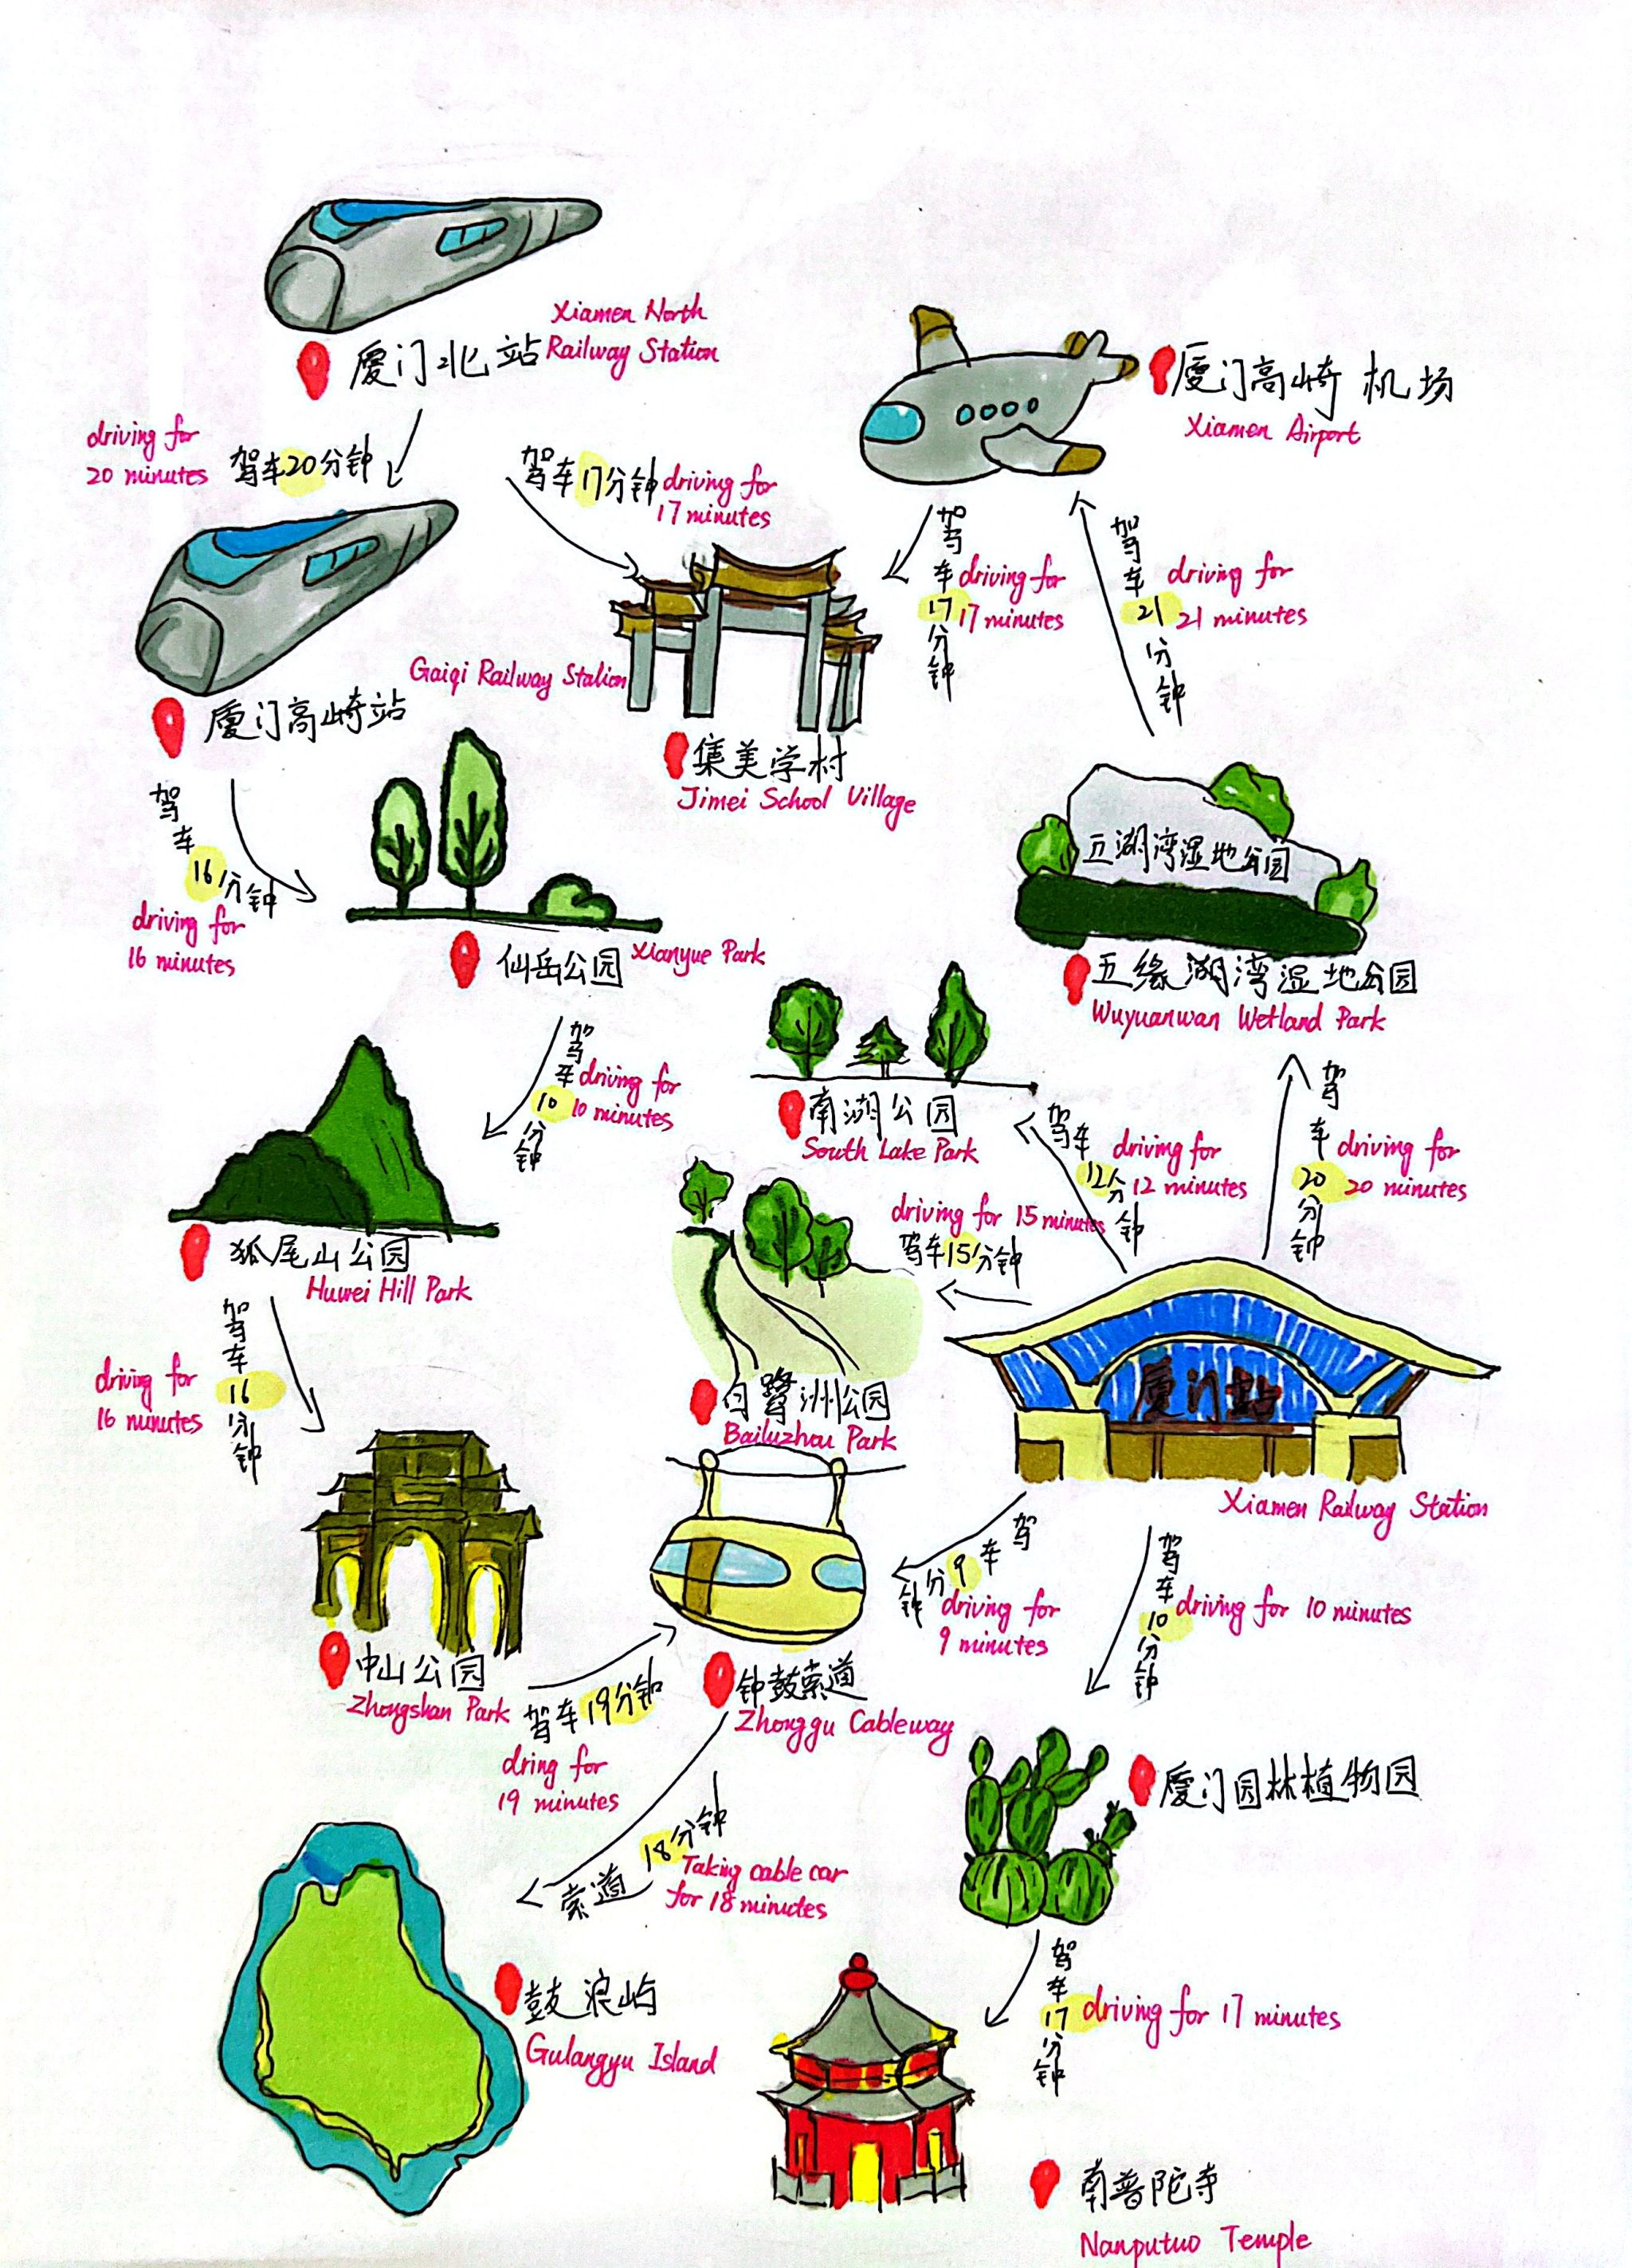 Xiamen North
Railway Station
厦门北站
厦门高崎机场
Xiamen Airport
driving for
20 minutes
驾车20分钟
驾车17分钟
driving for
17 minutes
驾车17分钟
driving for
17 minutes
驾车21分钟
driving for
21 minutes
Gaiqi Railway Station
厦门高崎站
集美学村
Jimei School Village
驾车16分钟
driving for
16 minutes
五湖湾湿地公园
仙岳公园
Xianyue Park
五缘湖湾湿地公园
Wuyuanwan Wetland Park
驾车10分钟
driving for
10 minutes
南湖公园
South Lake Park
驾车12分钟
driving for
12 minutes
驾车20分钟
driving for
20 minutes
狐尾山公园
Huwei Hill Park
driving for 15 minutes
驾车15分钟
驾车16分钟
driving for
16 minutes
白鹭洲公园
Bailuzhou Park
厦门站
Xiamen Railway Station
驾车9分钟
driving for
9 minutes
驾车10分钟
driving for 10 minutes
中山公园
Zhongshan Park
驾车19分钟
dring for
19 minutes
钟鼓索道
Zhonggu Cableway
厦门园林植物园
索道18分钟
Taking cable car
for 18 minutes
鼓浪屿
Gulangyu Island
驾车17分钟
driving for 17 minutes
南普陀寺
Nanputuo Temple